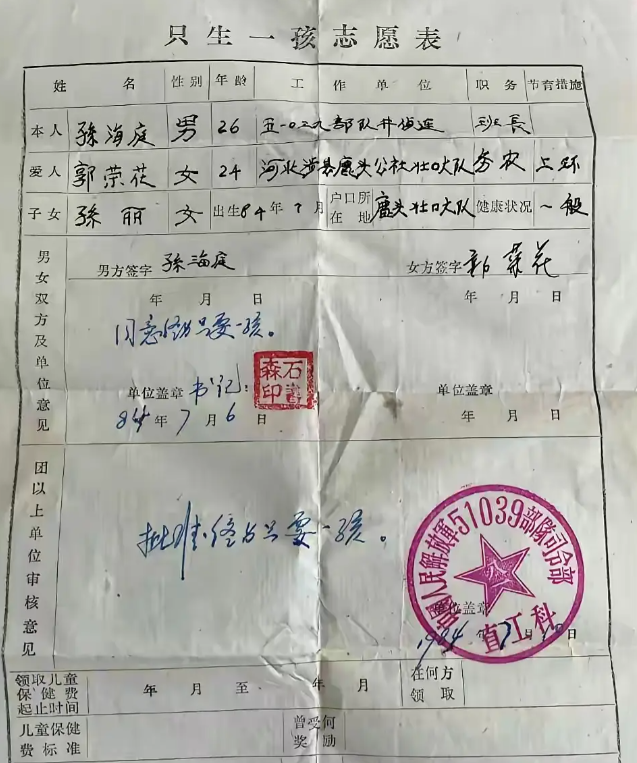 只生一孩志愿表
姓名 性别 年龄 工作单位 职务 节育措施
本人 孫海庭 男 26 五一0三九部队侦连 班長
爱人 郭荣花 女 24 河北涉县鹿头公社壮口大队 务农 上环
子女 孫丽 女 出生84年7月 户口所在地 鹿头壮口大队 健康状况 一般
男女双方及单位意见
男方签字 孫海庭 女方签字 郭荣花
年 月 日 年 月 日
同意终身只要一孩。
单位盖章 书记: 石书森印 单位盖章
84年7月6日 年 月 日
团以上单位审核意见
批准终身只要一孩。
中國人民解放軍51039部隊司令部
直工科
单位盖章
1984年7月 日
领取儿童保健费起止时间 年 月 至 年 月 在何方领取
儿童保健费标准 曾受何奖励